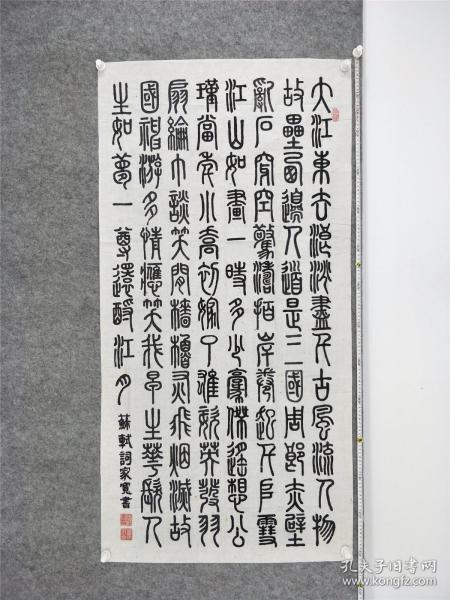 大江東去浪淘盡千古風流人物
故壘西邊人道是三國周郎赤壁
亂石穿空驚濤拍岸卷起千堆雪
江山如畫一時多少豪傑遙想公
瑾當年小喬初嫁了雄姿英發羽
扇綸巾談笑間檣櫓灰飛烟滅故
國神游多情應笑我早生華髮人
生如夢一尊還酹江月
蘇軾詞家寬書
孔夫子旧书网
www.kongfz.com